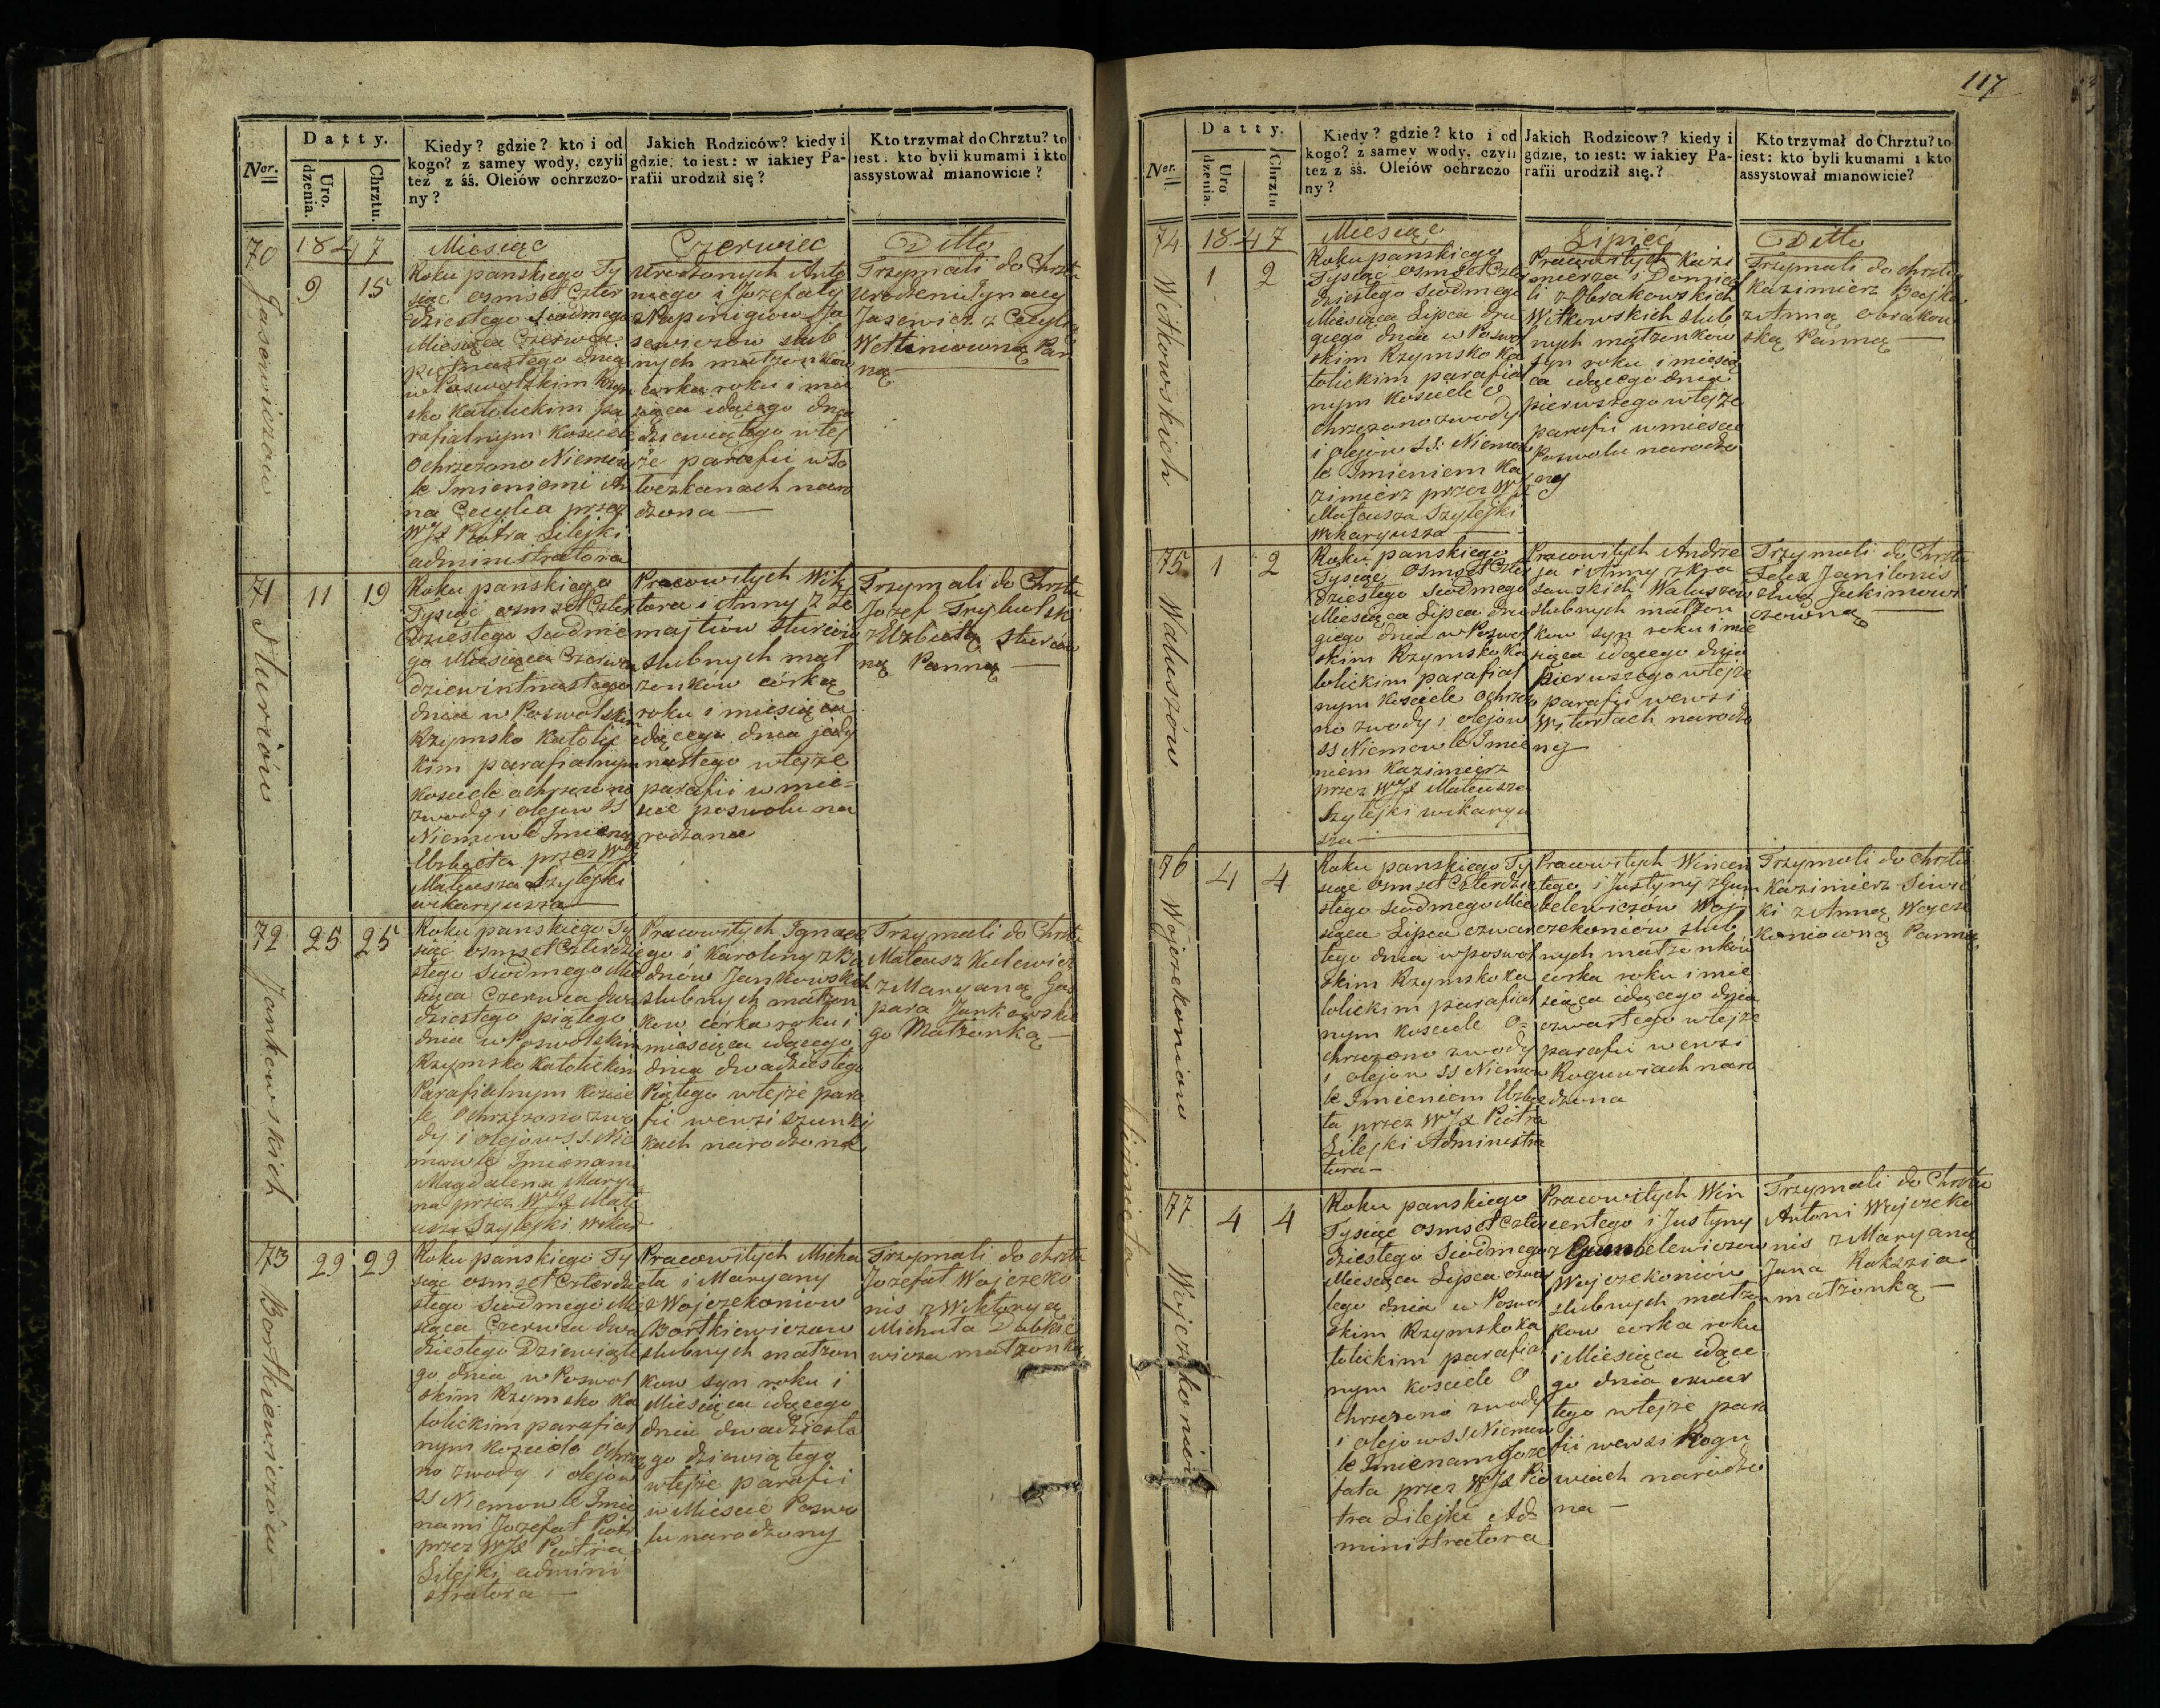 117
Datty.
Ner.
Urodzenia.
Chrztu.
Kiedy? gdzie? kto i od
kogo? z samey wody, czyli
też z śś. Oleiów ochrzczo-
ny?
Jakich Rodziców? kiedy i
gdzie, to iest: w iakiey Pa-
rafii urodził się?
Kto trzymał do Chrztu? to
iest: kto byli kumami i kto
assystował mianowicie?
1847
Miesiąc
Czerwiec
Ditto
70
Jasewiczow
9
15
Roku panskiego Ty
siąc osmset Czter
dziestego siodmego
Miesiąca Czerwca
piętnastego dnia
w Poswolskim Rzym
sko Katolickim pa
rafialnym Kosciele
Ochrzczono Niemow
le Imieniami An
na Cecylia przez
WJX Piotra Lilejki
administratora
Urodzonych Anto
niego i Jozefaty
Jasewiczow slub
nych małzonkow
corka roku i mie
siąca idącego dnia
dziewiątego w tej
że parafii w
naro
dzona —
Trzymali do Chrztu
Urodzeni Ignacy
Jasewicz z Cecylią
Pan
ną
71
Sturiow
11
19
Roku panskiego
Tysiąc osmset Czter
dziestego siodme
go Miesiąca Czerwca
dziewiętnastego
dnia w Poswolskim
Rzymsko Katolic
kim parafialnym
Kosciele ochrzczono
z wody i olejow SS
Niemowle Imieniem
Elzbieta przez WJX
Mateusza Szylejki
wikaryusza —
Pracowitych Wik
tora i Anny z Ze
majtiow Sturiow
slubnych mał
zonków córka
roku i miesiąca
idącego dnia jedy
nastego w tejze
parafii w mie-
scie poswolu na
rodzona
Trzymali do Chrztu
Jozef Trybulski
z Elzbietą Sturiow
ną Panną —
72
Jankowskich
25
25
Roku panskiego Ty
siąc osmset Czterdzie
stego siodmego Mie
siąca Czerwca dwa
dziestego piątego
dnia w Poswolskim
Rzymsko Katolickim
Parafialnym Koscie
le Ochrzczono z wo
dy i olejow SS Nie
mowle Imienami
Magdalena Marya
na przez WJX Mate
usza Szylejki Wikar
Pracowitych Ignace
go i Karoliny z
Jankowskich
slubnych małzon
kow corka roku i
miesiąca idącego
dnia dwadziestego
Piątego w tejże para
fii we wsi Szunki
kach narodzona
Trzymali do Chrztu
Mateusz Kulewicz
z Maryaną Gas
para Jankowskie
go Małzonką —
73
Bortkiewiczow
29
29
Roku panskiego Ty
siąc osmset Czterdzie
stego siodmego Mie
siąca Czerwca dwa
dziestego Dziewiąte
go dnia w Poswol
skim Rzymsko Ka
tolickim parafial
nym kosciele Ochrzczo
no z wody i olejow
SS Niemowle Imie
nami Jozefat Piotr
przez WJX Piotra
Lilejki admini
stratora —
Pracowitych Micha
ła i Maryany
z Wojczekoniow
Bortkiewiczow
slubnych małzon
kow syn roku i
Miesiąca idącego
dnia dwadziesto
go dziewiątego
w tejże parafii
w Miescie Poswo
lu narodzony
Trzymali do chrztu
Jozefat Wojczeko
nis z Wiktoryą
Michała Dabkie
wicza małzonką
Datty.
Ner.
Urodzenia.
Chrztu
Kiedy? gdzie? kto i od
kogo? z samey wody, czyli
też z śś. Oleiów ochrzczo
ny?
Jakich Rodzicow? kiedy i
gdzie, to iest: w iakiey Pa-
rafii urodził się.?
Kto trzymał do Chrztu? to
iest: kto byli kumami i kto
assystował mianowicie?
1847
Miesiąc
Lipiec
Ditto
74
Witkowskich
1
2
Roku panskiego
Tysiąc osmset Czter
dziestego siodmego
Miesiąca Lipca dru
giego dnia w Poswol
skim Rzymsko Ka
tolickim parafial
nym kosciele O
chrzczono z wody
i olejow SS. Niemow
le Imieniem Ka
zimierz przez WJX
Mateusza Szylejki
Wikaryusza —
Pracowitych Kazi
mierza i
z Obrakowskich
Witkowskich slub
nych małzonkow
syn roku i miesią
ca idącego dnia
pierwszego w tejze
parafii w miescie
Poswolu narodzo
ny
Trzymali do chrztu
Kazimierz
z Anną Obrakow
ską Panną —
75
Waluszow
1
2
Roku panskiego
Tysiąc Osmset Czter
dziestego siodmego
Miesiąca Lipca dru
giego dnia w Poswol
skim Rzymsko Ka
tolickim parafial
nym kosciele ochrzczo
no z wody i olejow
SS Niemowle Imie
niem Kazimierz
przez WJX Mateusza
Szylejki wikaryu
sza —
Pracowitych Andrze
ja i Anny z Kra
sauskich Waluszow
slubnych małzon
kow syn roku i mie
siąca idącego dnia
pierwszego w tejze
parafii we wsi
Witortach narodzo
ny
Trzymali do Chrztu
Felix Janilonis
z Jakimowi
czowną —
76
Wojczekoniow
4
4
Roku panskiego Ty
siąc Osmset Czterdzie
stego siodmego Mie
siąca Lipca czwar
tego dnia w poswol
skim Rzymsko Ka
tolickim parafial
nym kosciele O-
chrzczono z wody
i olejow SS Niemow
le Imieniem Elzbie
ta przez WJX Piotra
Lilejki Administra
tora —
Pracowitych Wincen
tego i Justyny z Gum
belewiczów Woj
czekoniów slub
nych małzonków
corka roku i mie
siąca idącego dnia
czwartego w tejze
parafii we wsi
Roguwiach naro
dzona
Trzymali do chrztu
Kazimierz Siwic
ki z Anną Wojcze
koniowną Panną
77
Wojczekoniow
4
4
Roku panskiego
Tysiąc osmset Czter
dziestego Siodmego
Miesiąca Lipca czwar
tego dnia w Poswol
skim Rzymsko Ka
tolickim parafial
nym kosciele O
chrzczono z wody
i olejow SS Niemow
le Imienami Joze
fata przez WJX Pio
tra Lilejki Ad
ministratora
Pracowitych Win
centego i Justyny
z Gumbelewiczow
Wojczekoniow
slubnych małzon
kow corka roku
i Miesiąca idące
go dnia czwar
tego w tejze para
fii we wsi Rogu
wiach narodzo
na —
Trzymali do Chrztu
Antoni Wojczeko
nis z Maryaną
Jana Rakszia
małzonką —